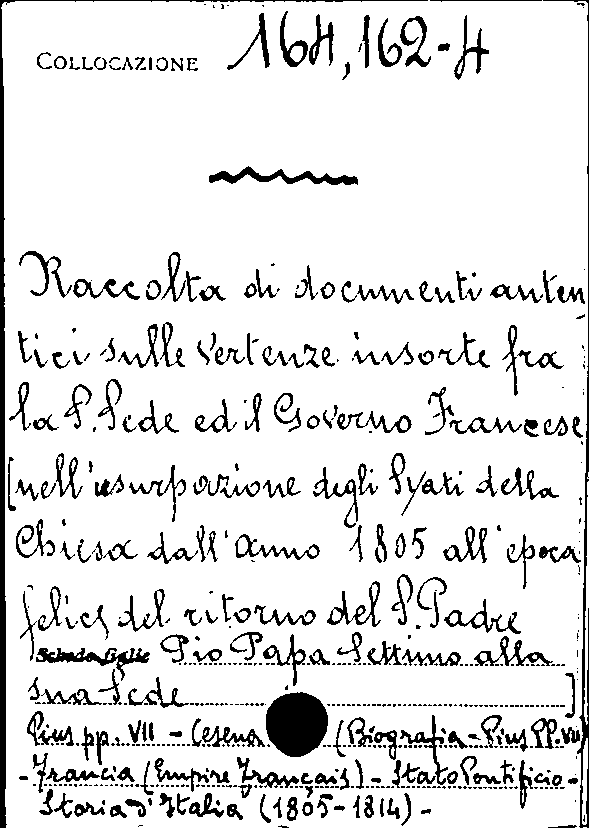 COLLOCAZIONE 164,162-4
Raccolta di documenti auten
tici sulle vertenze insorte fra
la S. Sede ed il Governo Francese
[nell'usurpazione degli Stati della
Chiesa dall'anno 1805 all'epoca
felice del ritorno del S. Padre
Scheda figlie Pio Papa Settimo alla
sua Sede ]
Pius pp. VII - Cesena (Biografia - Pius PP. VII)
- Francia (Empire Français) - Stato Pontificio -
Storia d'Italia (1805-1814) -